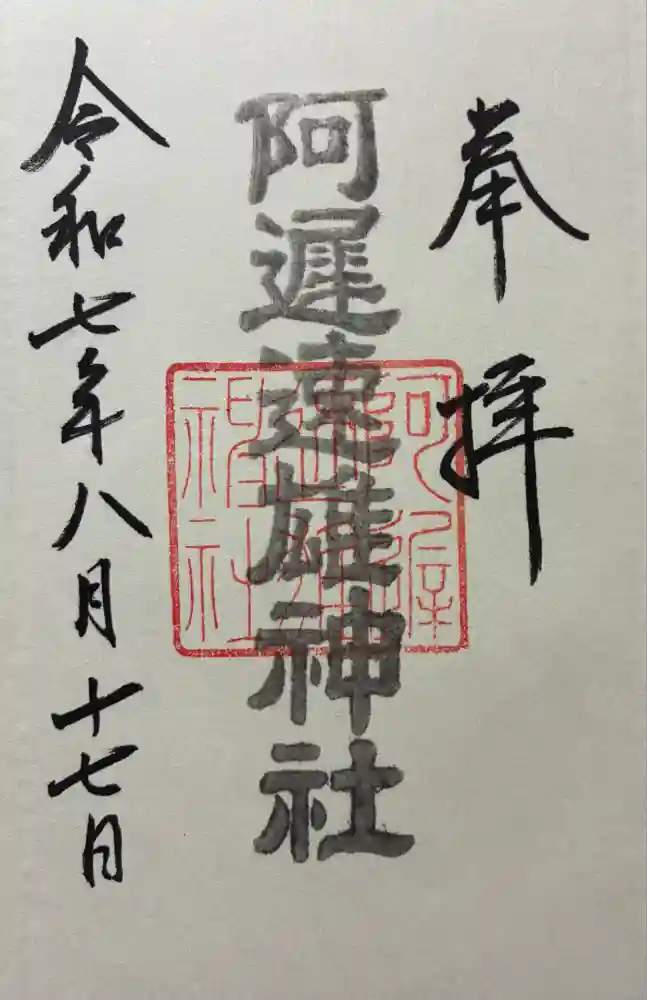 奉拝
阿遲速雄神社
阿遅速雄神社
令和七年八月十七日